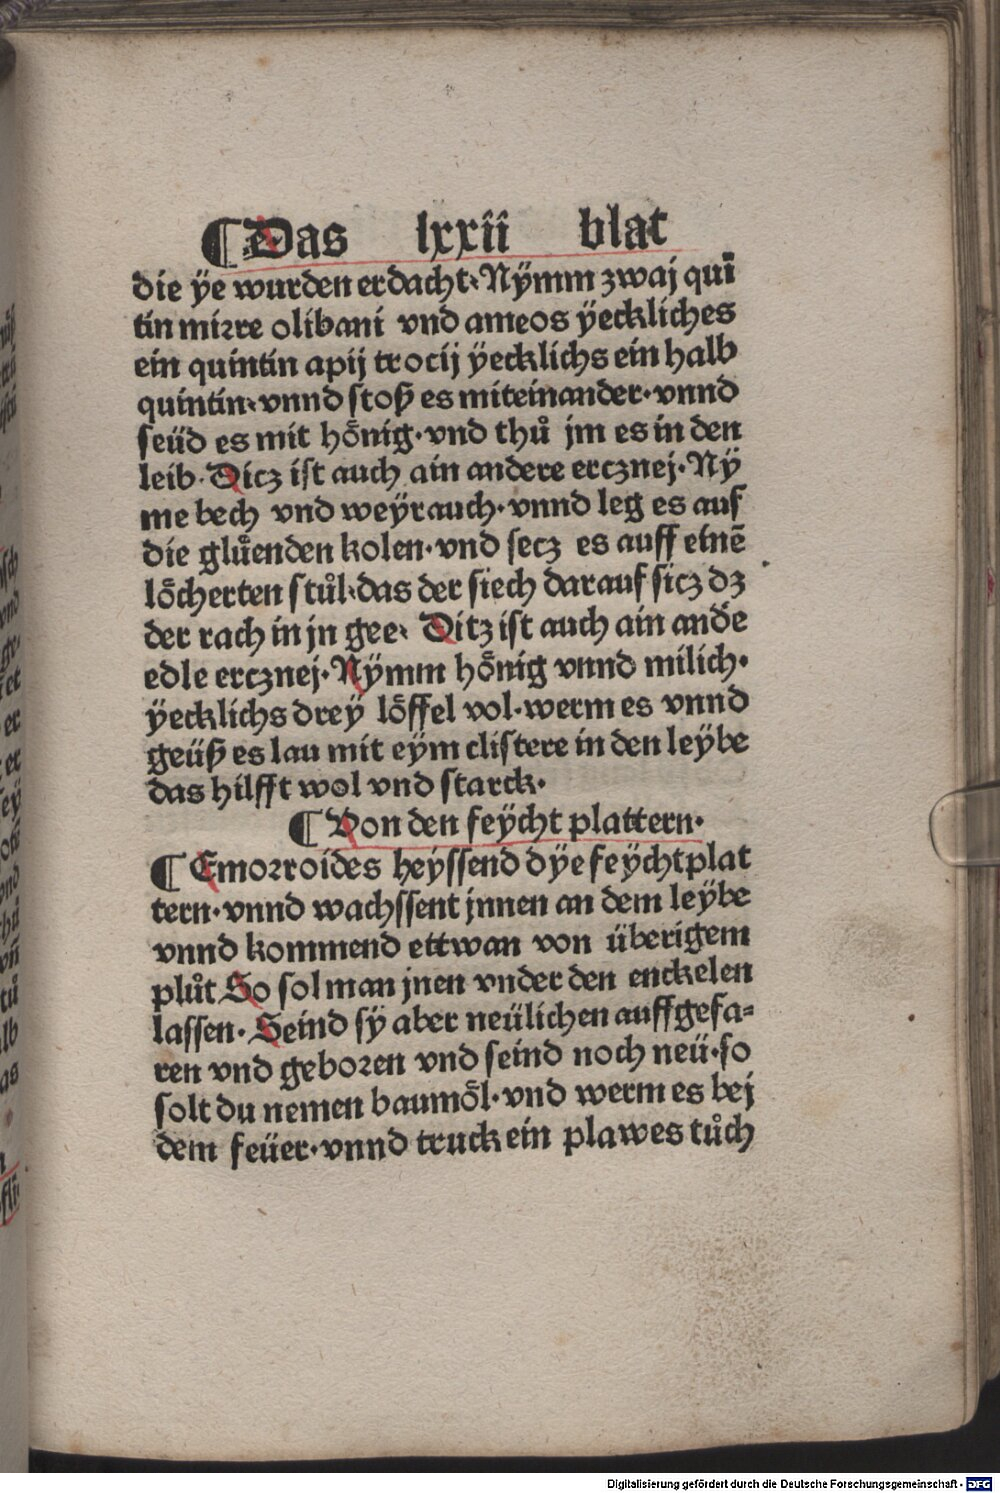 ¶Das lxxii blat
die ÿe wurden erdacht·Nÿmm zwaj quī
tin mirre olibani vnd ameos ÿeckliches
ein quintin apij trocij ÿecklichs ein halb
quintin·vnnd stoß es miteinander·vnnd
seüd es mit hönig·vnd thů jm es in den
leib·Dicz ist auch ain andere ercznej·Nÿ
me bech vnd weÿrauch·vnnd leg es auf
die glůenden kolen·vnd secz es auff einē
löcherten stůl·das der siech darauf sicz dz
der rach in jn gee· Ditz ist auch ain anďe
edle ercznej·Nÿmm hönig vnnd milich·
ÿecklichs dreÿ löffel vol·werm es vnnd
geüß es lau mit eÿm clistere in den leÿbe
das hilfft wol vnd starck·
¶Von den feÿcht plattern·
¶Emorroides heÿssend dÿe feÿchtplat
tern·vnnd wachssent jnnen an dem leÿbe
vnnd kommend ettwan von überigem
plůt So sol man jnen vnder den enckelen
lassen·Seind sÿ aber neülichen auffgefa⸗
ren vnd geboren vnd seind noch neü·so
solt du nemen baumöl·vnd werm es bej
dem feüer·vnnd truck ein plawes tůch
Digitalisierung gefördert durch die Deutsche Forschungsgemeinschaft · DFG